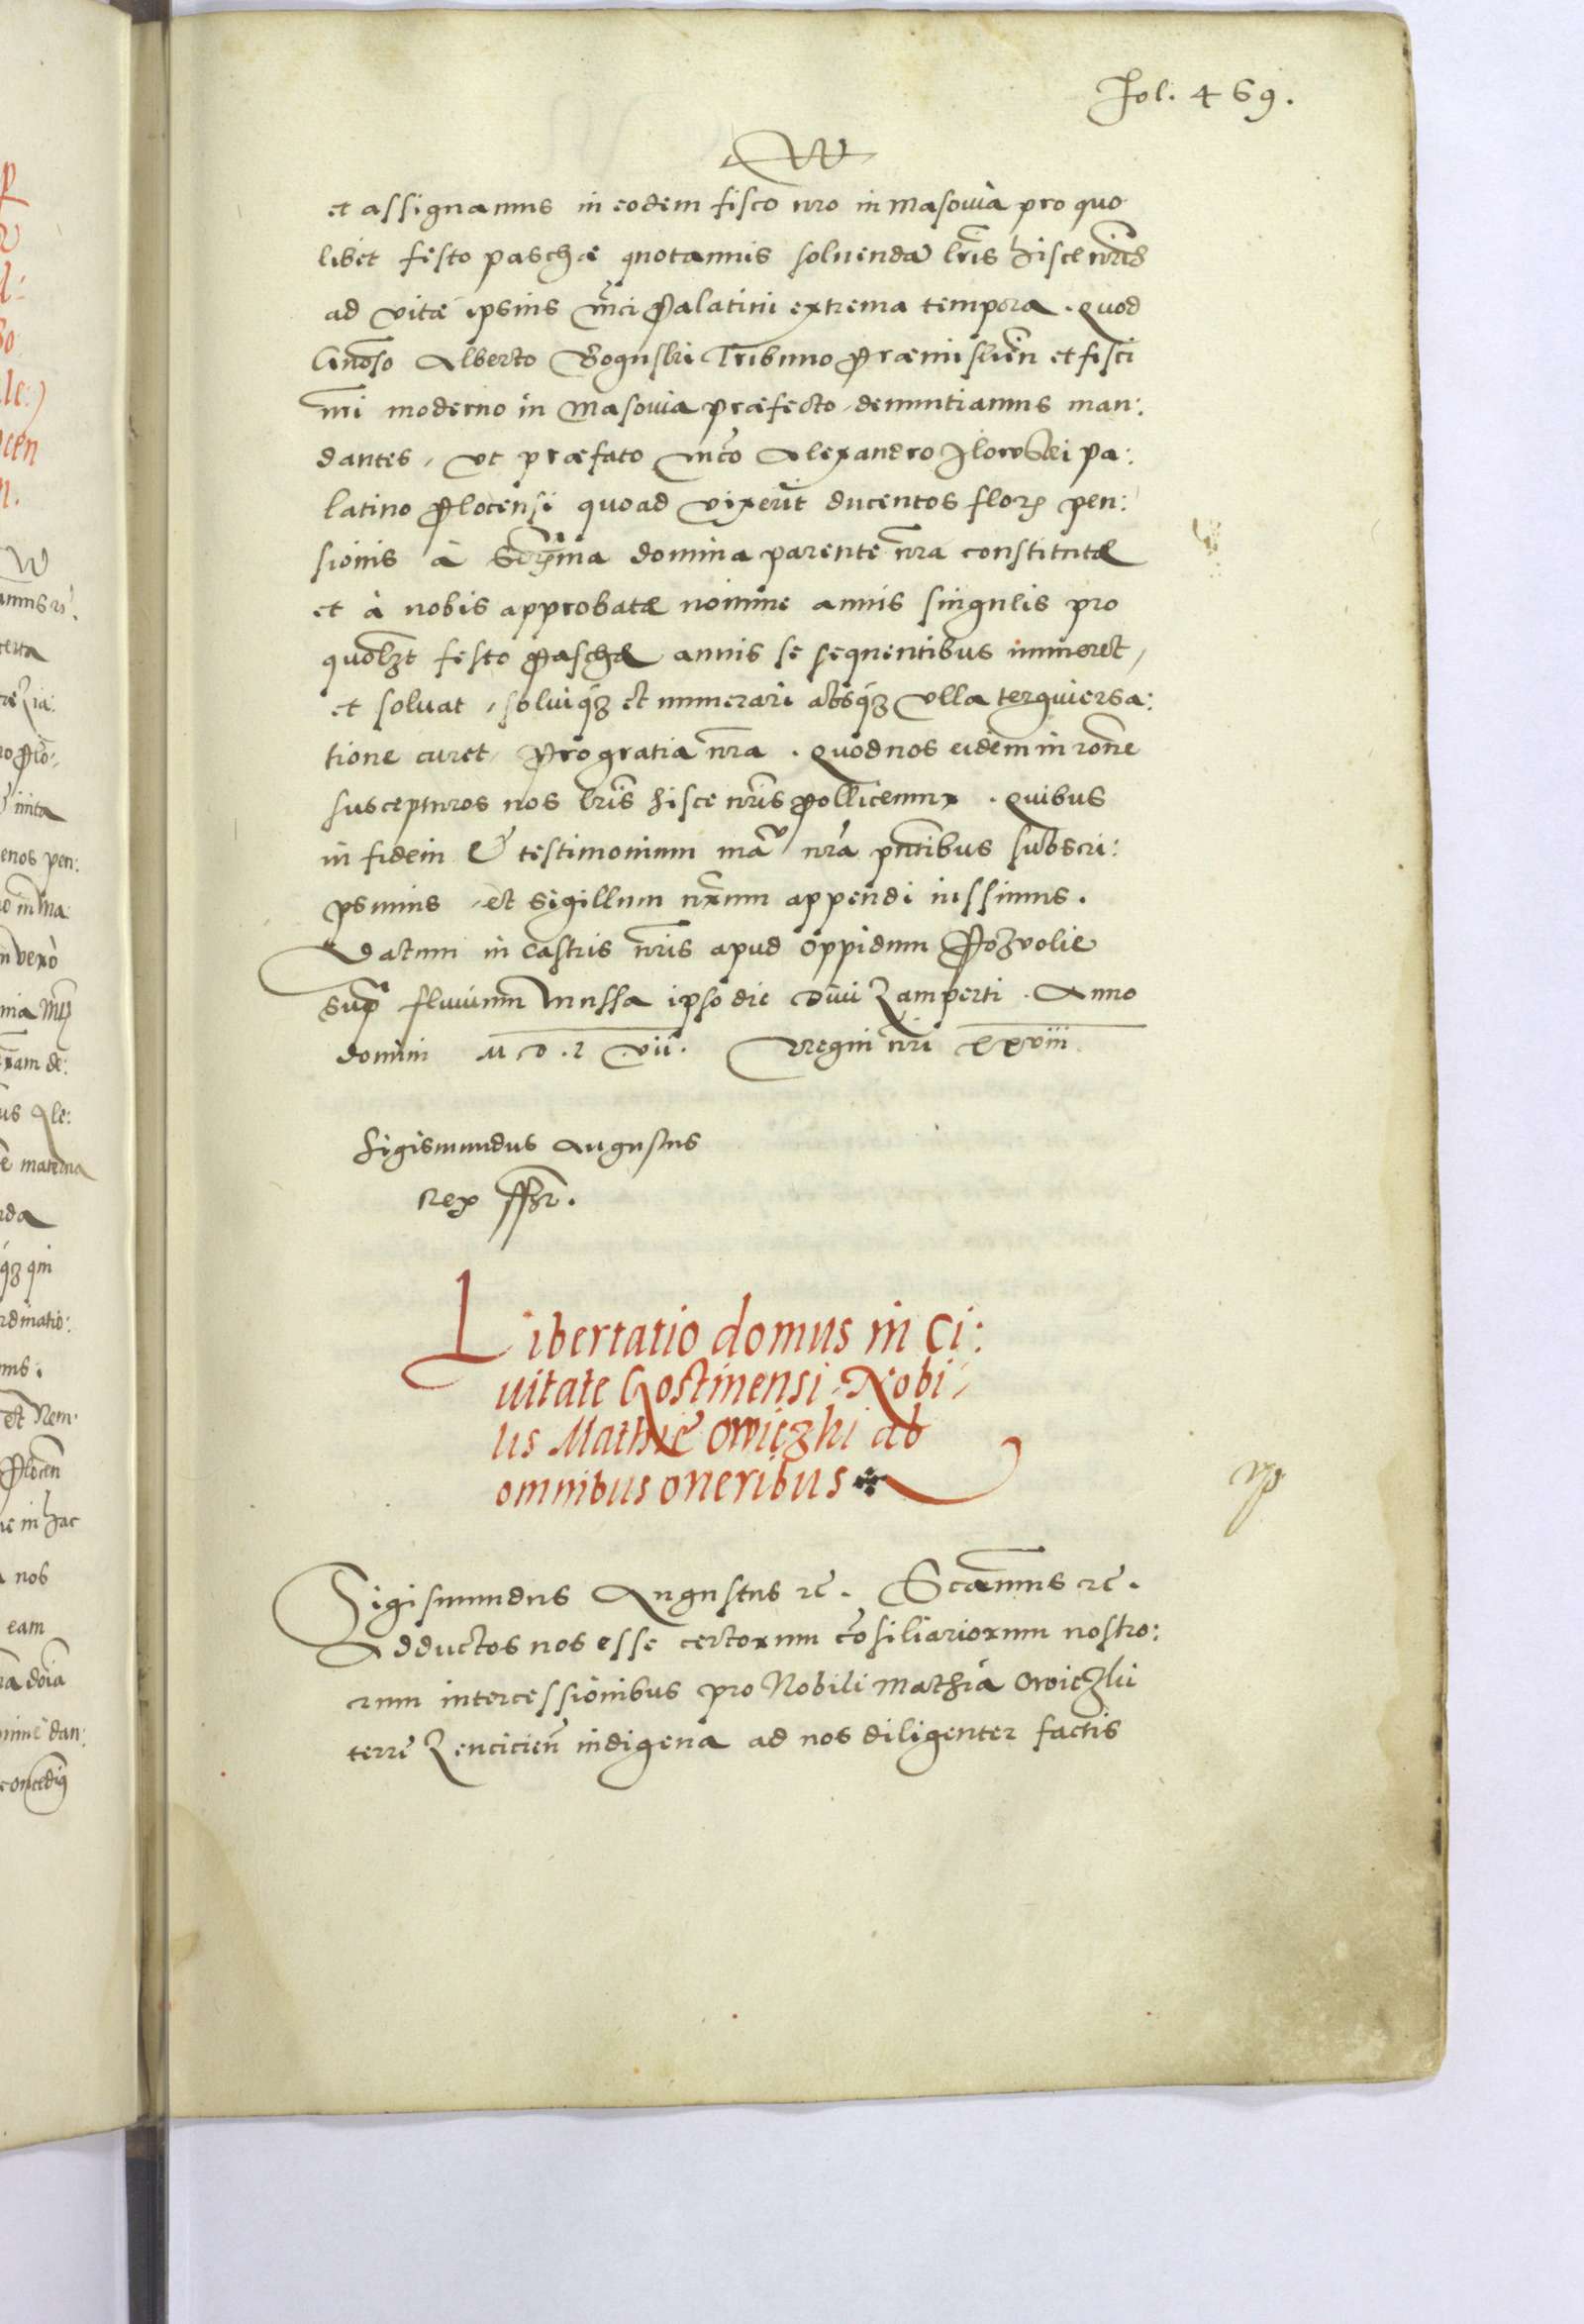 Fol. 469.
W
et assignamus in eodem fisco nro in Masouia pro quo
libet festo paschæ quotannis soluenda lris hisce nris
ad vitæ ipsius mci Palatini extrema tempora. Quod
Gnoso Alberto Boguski Tribuno Præmislien et fisci
nri moderno in Masouia præfecto denuntiamus man:
dantes, vt præfato mco Alexandro Ilowski pa:
latino Plocensi quoad vixerit ducentos flor pen:
sionis à Serma domina parente nra constitutæ
et à nobis approbatæ nomine annis singulis pro
quolzt festo Paschæ annis se sequentibus numeret,
et soluat, soluiqz et numerari absqz vlla tergiuersa:
tione curet, Pro gratia nra. Quod nos eidem in rone
suscepturos nos lris hisce nris pollicemur. Quibus
in fidem & testimonium manu nra pntibus subscri:
psimus, et sigillum nrum appendi iussimus.
Datum in Castris nris apud oppidum Pozvolie
supra fluuium Mussa ipso die Diui Lamperti. Anno
domini M D. L vii. Regni nri xxviii
Sigismundus Augustus
Rex sszt.
Libertatio domus in Ci:
uitate Gostinensi, Nobi,
lis Mathię Owiczki ab
omnibus oneribus
Sigismundus Augustus rc. Scamus rc.
Adductos nos esse certorum cosiliariorum nostro:
rum intercessionibus pro Nobili Mathia Owiczki
terre Lencicien indigena ad nos diligenter factis